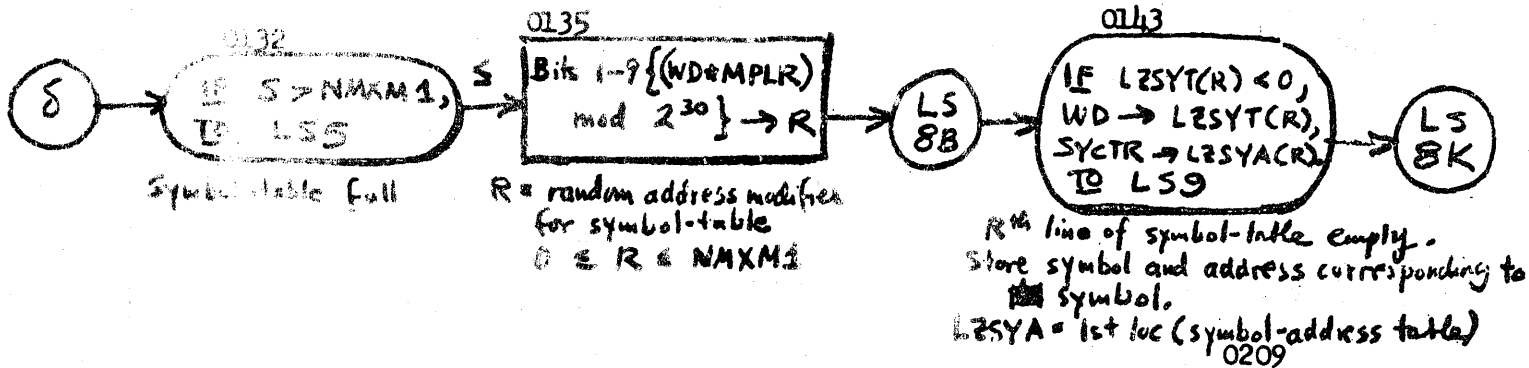 δ
0132
IF S > NMXM1,
TO LS5
Symbol-table full
S
0135
Bits 1-9{(WD*MPLR)
mod 2^30} → R
R = random address modifier
for symbol-table
0 ≤ R ≤ NMXM1
LS
8B
0143
IF LZSYT(R) < 0,
WD → LZSYT(R),
SYCTR → LZSYA(R).
TO LS9
Rth line of symbol-table empty.
Store symbol and address corresponding to
symbol.
LZSYA = 1st loc (symbol-address table)
0209
LS
8K